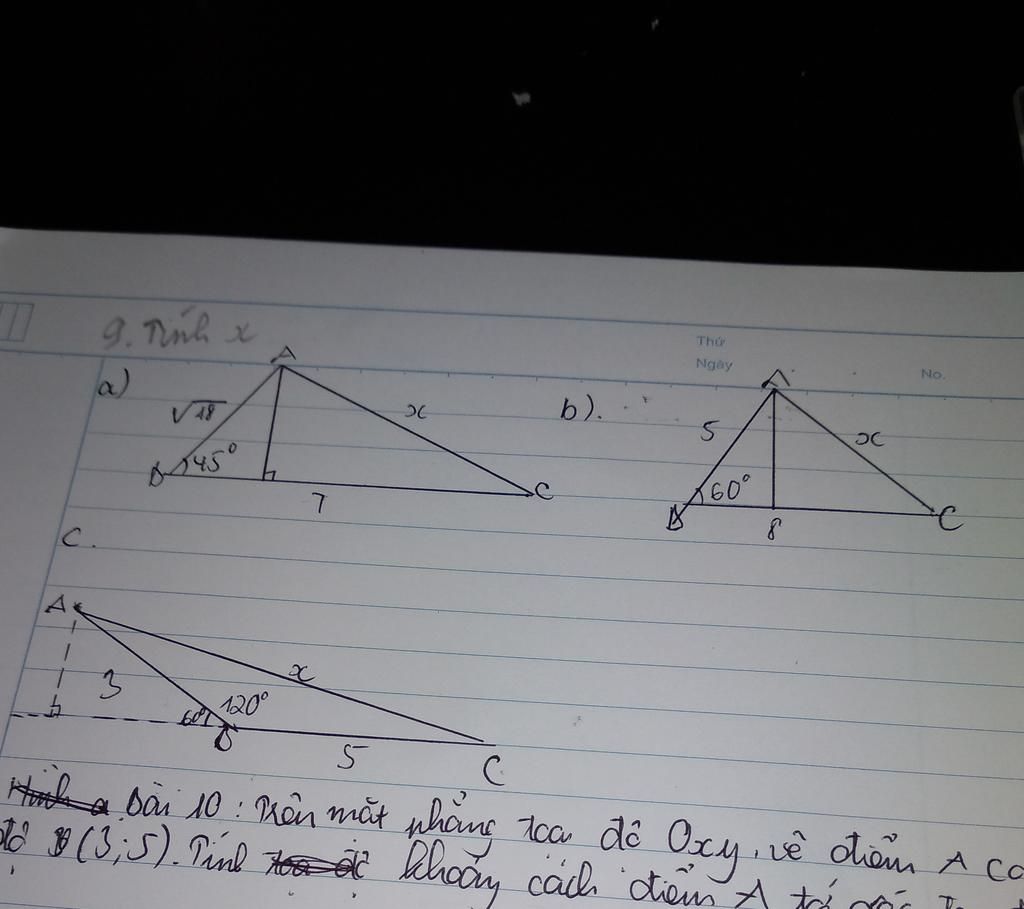 9. Tính x
Thứ
Ngày
No.
a)
A
√18
x
45°
B
7
C
b).
A
5
x
60°
B
8
C
C.
A
x
3
60°
120°
B
5
C
Bài 10: Trên mặt phẳng toạ độ Oxy, vẽ điểm A co
độ (3;5). Tính khoảng cách điểm A tớ